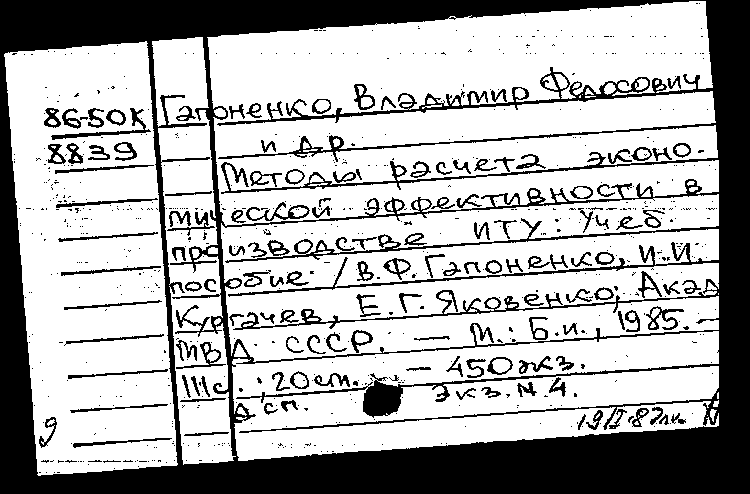 86-50К Гапоненко, Владимир Федосович
8839 и др.
Методы расчета эконо-
мической эффективности в
производстве ИТУ: Учеб.
пособие / В.Ф. Гапоненко, И.И.
Кургачев, Е.Г. Яковенко; Акад
МВД СССР. — М.: Б.и., 1985. —
111с.; 20см. — 450экз.
Дсп. Экз. N.4.
9